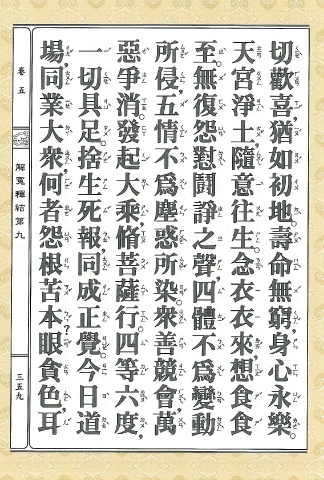 切歡喜,猶如初地。壽命無窮,身心永樂。
天宮淨土,隨意往生。念衣衣來,想食食
至。無復怨對鬪諍之聲,四體不爲變動
所侵,五情不爲塵惑所染。衆善競會,萬
惡爭消。發起大乘,脩菩薩行。四等六度,
一切具足。捨生死報,同成正覺。今日道
場,同業大衆,何者怨根苦本?眼貪色,耳
卷五
解冤釋結第九
三五九